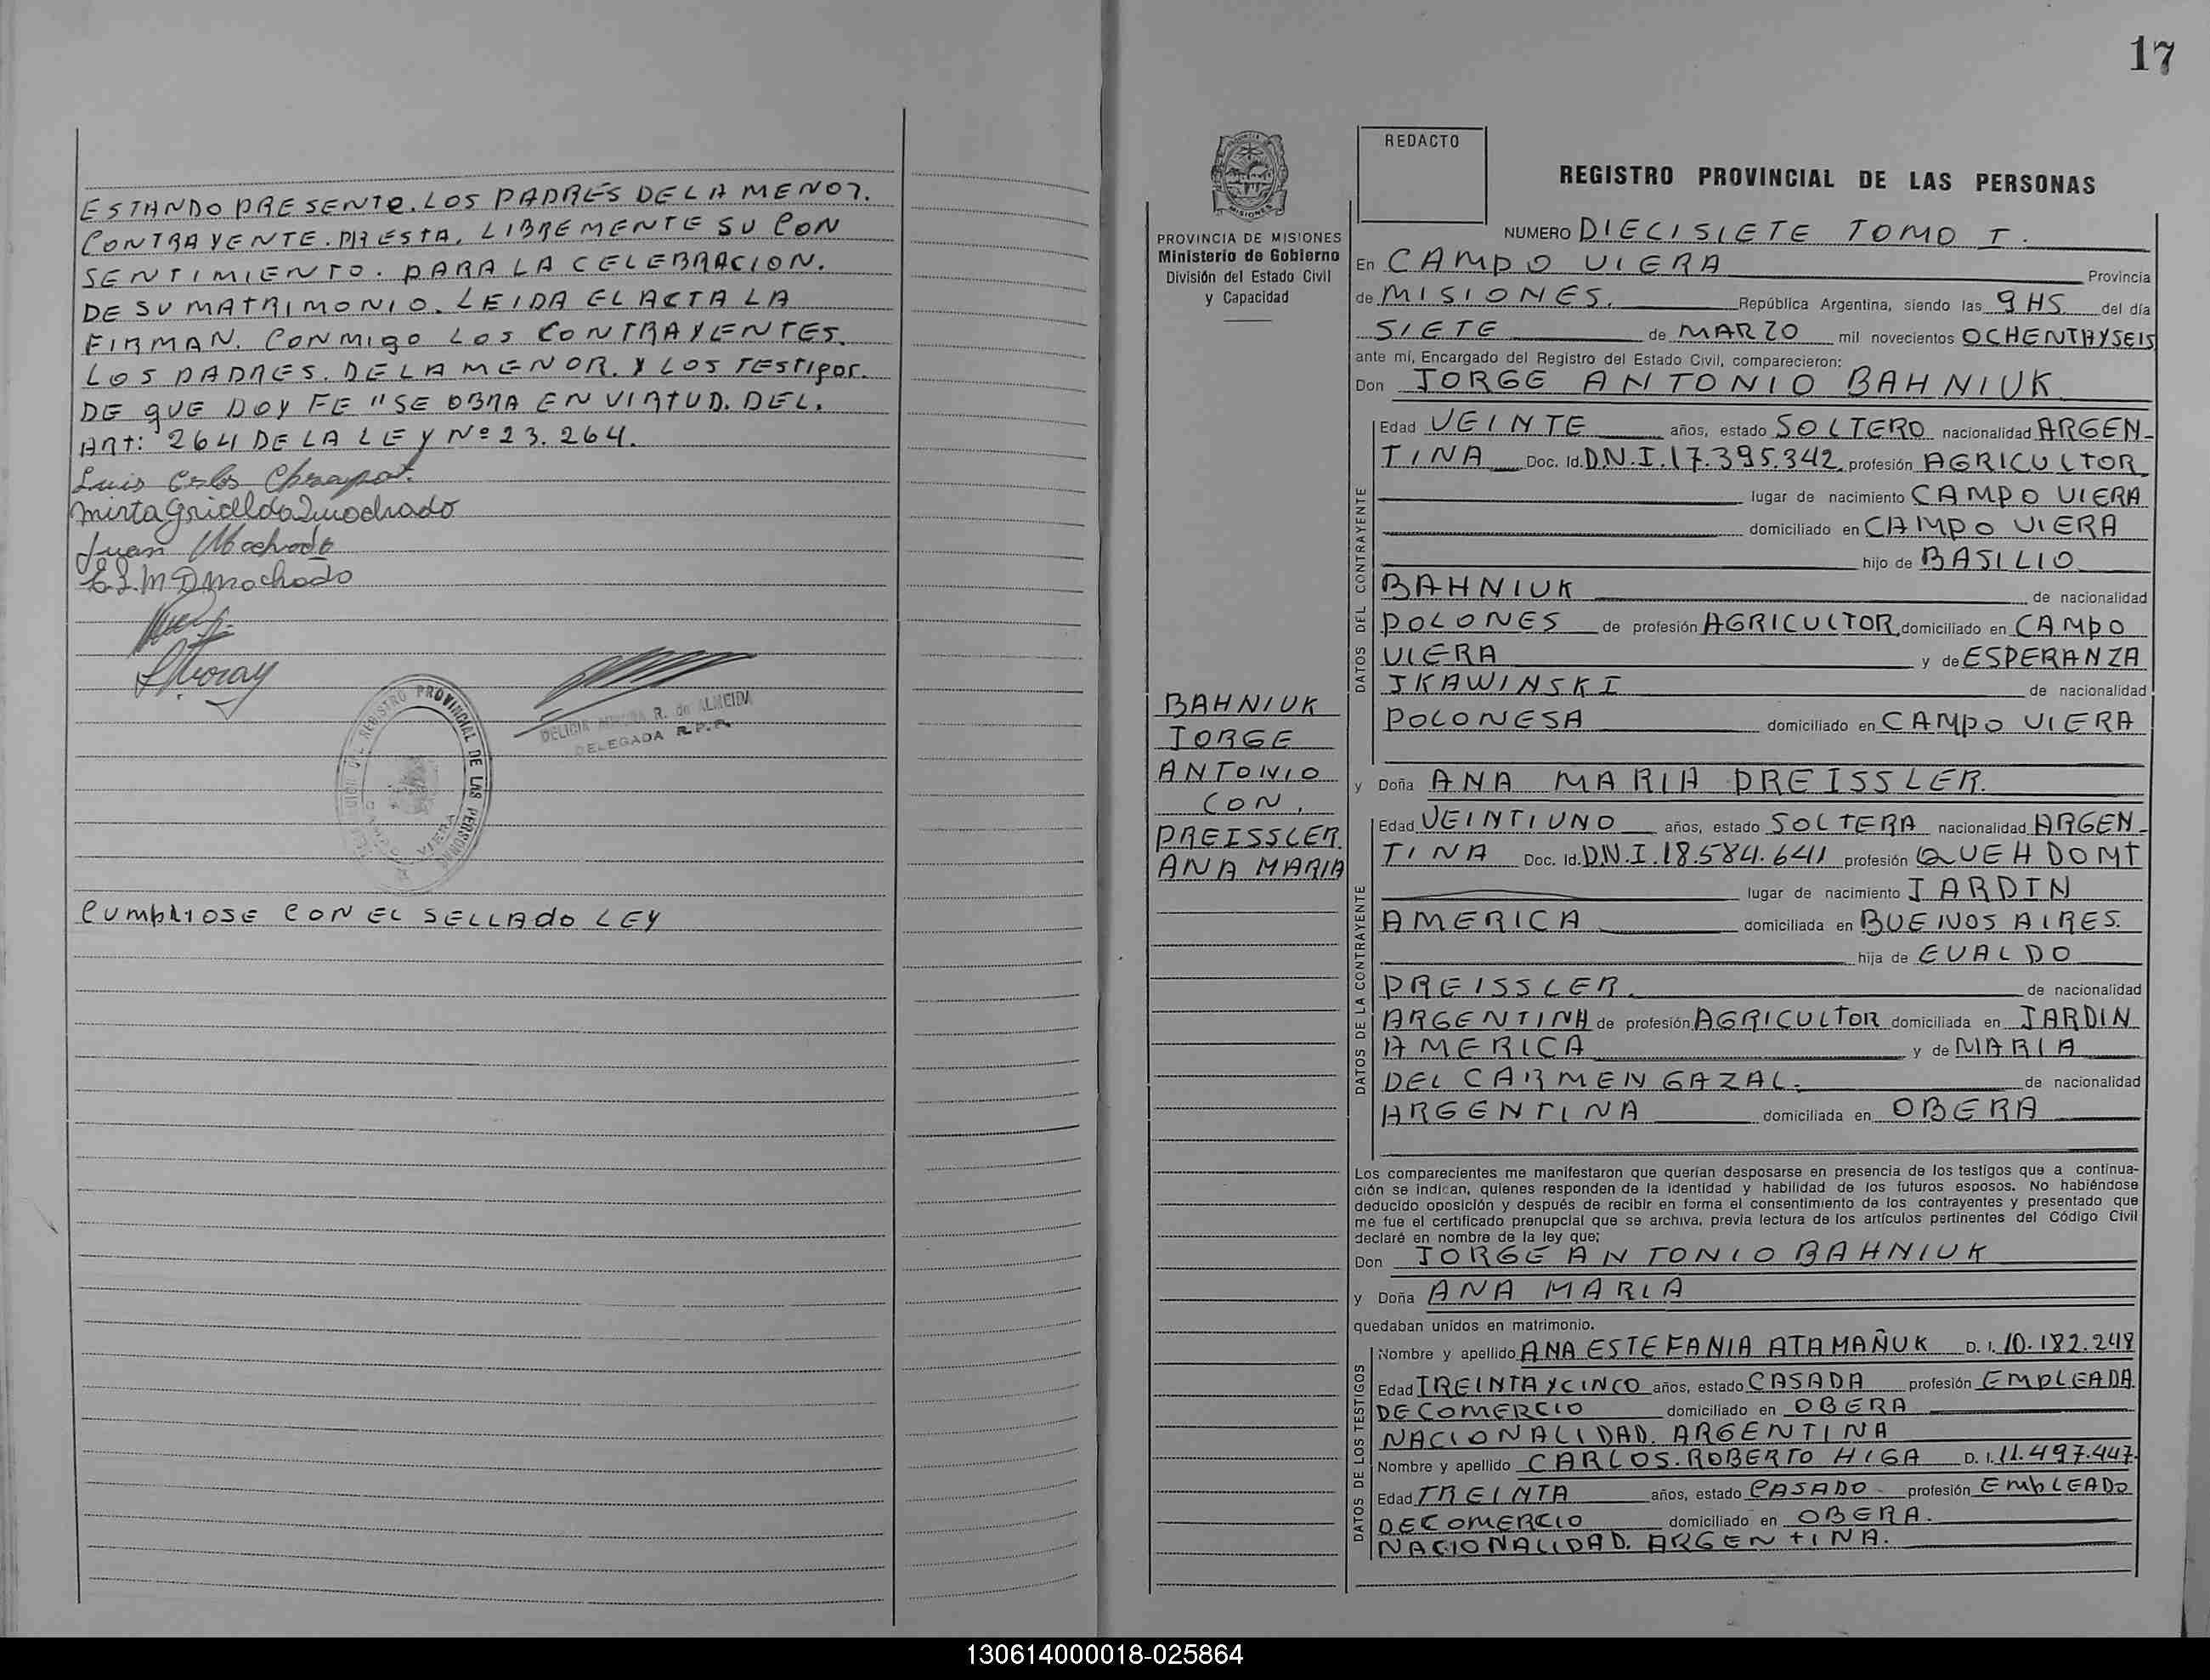 ESTANDO PRESENTE. LOS PADRES DE LA MENOR.
CONTRAYENTE. PRESTA. LIBREMENTE SU CON
SENTIMIENTO. PARA LA CELEBRACION.
DE SU MATRIMONIO. LEIDA EL ACTA LA
FIRMAN. CONMIGO LOS CONTRAYENTES.
LOS PADRES. DE LA MENOR. Y LOS TESTIGOS.
DE QUE DOY FE "SE OBRA EN VIRTUD. DEL.
ART: 264 DE LA LEY Nº 23.264.
Luis Carlos
Juan Machado
Machado
R. de ALMEIDA
DELEGADA R.P.P.
REGISTRO PROVINCIAL DE LAS PERSONAS
VIERA
CUMPLIOSE CON EL SELLADO LEY
17
PROVINCIA DE MISIONES
Ministerio de Gobierno
División del Estado Civil
y Capacidad
BAHNIUK
JORGE
ANTONIO
CON.
PREISSLER.
ANA MARIA
REDACTO
REGISTRO PROVINCIAL DE LAS PERSONAS
NUMERO DIECISIETE TOMO I.
En CAMPO VIERA Provincia
de MISIONES. República Argentina, siendo las 9 HS. del día
SIETE de MARZO mil novecientos OCHENTAYSEIS
ante mi, Encargado del Registro del Estado Civil, comparecieron:
Don JORGE ANTONIO BAHNIUK
DATOS DEL CONTRAYENTE
Edad VEINTE años, estado SOLTERO nacionalidad ARGEN-
TINA Doc. Id. D.N.I. 17.395.342. profesión AGRICULTOR
lugar de nacimiento CAMPO VIERA
domiciliado en CAMPO VIERA
hijo de BASILIO
BAHNIUK de nacionalidad
POLONES de profesión AGRICULTOR, domiciliado en CAMPO
VIERA y de ESPERANZA
JKAWINSKI de nacionalidad
POLONESA domiciliado en CAMPO VIERA
y Doña ANA MARIA PREISSLER.
DATOS DE LA CONTRAYENTE
Edad VEINTIUNO años, estado SOLTERA nacionalidad ARGEN-
TINA Doc. Id. D.N.I. 18.584.641 profesión QUEH DOMT
lugar de nacimiento JARDIN
AMERICA domiciliada en BUENOS AIRES.
hija de EVALDO
PREISSLER. de nacionalidad
ARGENTINA de profesión AGRICULTOR domiciliada en JARDIN
AMERICA y de MARIA
DEL CARMEN GAZAL. de nacionalidad
ARGENTINA domiciliada en OBERA
Los comparecientes me manifestaron que querían desposarse en presencia de los testigos que a continua-
ción se indican, quienes responden de la identidad y habilidad de los futuros esposos. No habiéndose
deducido oposición y después de recibir en forma el consentimiento de los contrayentes y presentado que
me fue el certificado prenupcial que se archiva, previa lectura de los artículos pertinentes del Código Civil
declaré en nombre de la ley que:
Don JORGE ANTONIO BAHNIUK
y Doña ANA MARIA
quedaban unidos en matrimonio.
DATOS DE LOS TESTIGOS
Nombre y apellido ANA ESTEFANIA ATAMAÑUK D. I. 10.182.248
Edad TREINTA Y CINCO años, estado CASADA profesión EMPLEADA
DE COMERCIO domiciliado en OBERA
NACIONALIDAD. ARGENTINA
Nombre y apellido CARLOS. ROBERTO HIGA D. I. 11.497.447.
Edad TREINTA años, estado CASADO profesión EMPLEADO
DE COMERCIO domiciliado en OBERA.
NACIONALIDAD. ARGENTINA.
130614000018-025864